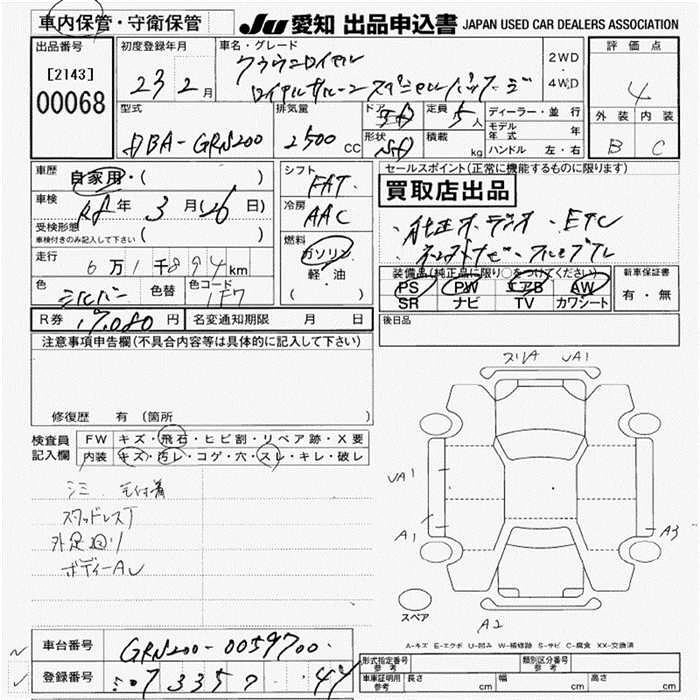 車内保管・守衛保管
JU 愛知 出品申込書 JAPAN USED CAR DEALERS ASSOCIATION
出品番号
[2143]
00068
初度登録年月
23 2月
車名・グレード
クラウンロイヤル
ロイヤルサルーン スペシャルパッケージ
2WD
4WD
評価点
4
外装 内装
B C
型式
DBA-GRS200
排気量
2500 CC
ドア
形状
定員 5人
積載 kg
ディーラー・並行
モデル年式 年
ハンドル 左・右
車歴 自家用・( )
車検 R8年 3月26日)
受検形態
車検付きのみ記入して下さい ( )
走行
6万1千894km
色 シルバー 色替 色コード 1F7
シフト
FAT
冷房
AAC
燃料
ガソリン
軽・油
( )
セールスポイント(正常に機能するものに限ります)
買取店出品
・純正オーディオ・ETC
装備品(純正品に限り○をつけてください)
PS PW エアB AW
SR ナビ TV カワシート
新車保証書
有・無
R券 17,080円 名変通知期限 月 日
後日品
注意事項申告欄(不具合内容等は具体的に記入して下さい)
修復歴 有 (箇所
検査員記入欄
FW キズ・飛石・ヒビ割・リペア跡・X要
内装 キズ・汚レ・コゲ・穴・スレ・キレ・破レ
シミ 毛付着
スタッドレスT
外足回り
ボディーAU
スリA UA1
UA1
A1
A3
A2
スペア
A-キズ E-エクボ U-凹み W-補修跡 S-サビ C-腐食 XX-交換済
車台番号 GRS200-0059700
登録番号
形式指定番号 参考
類別区分番号 参考
車庫証明用 参考 長さ cm 幅 cm 高さ cm